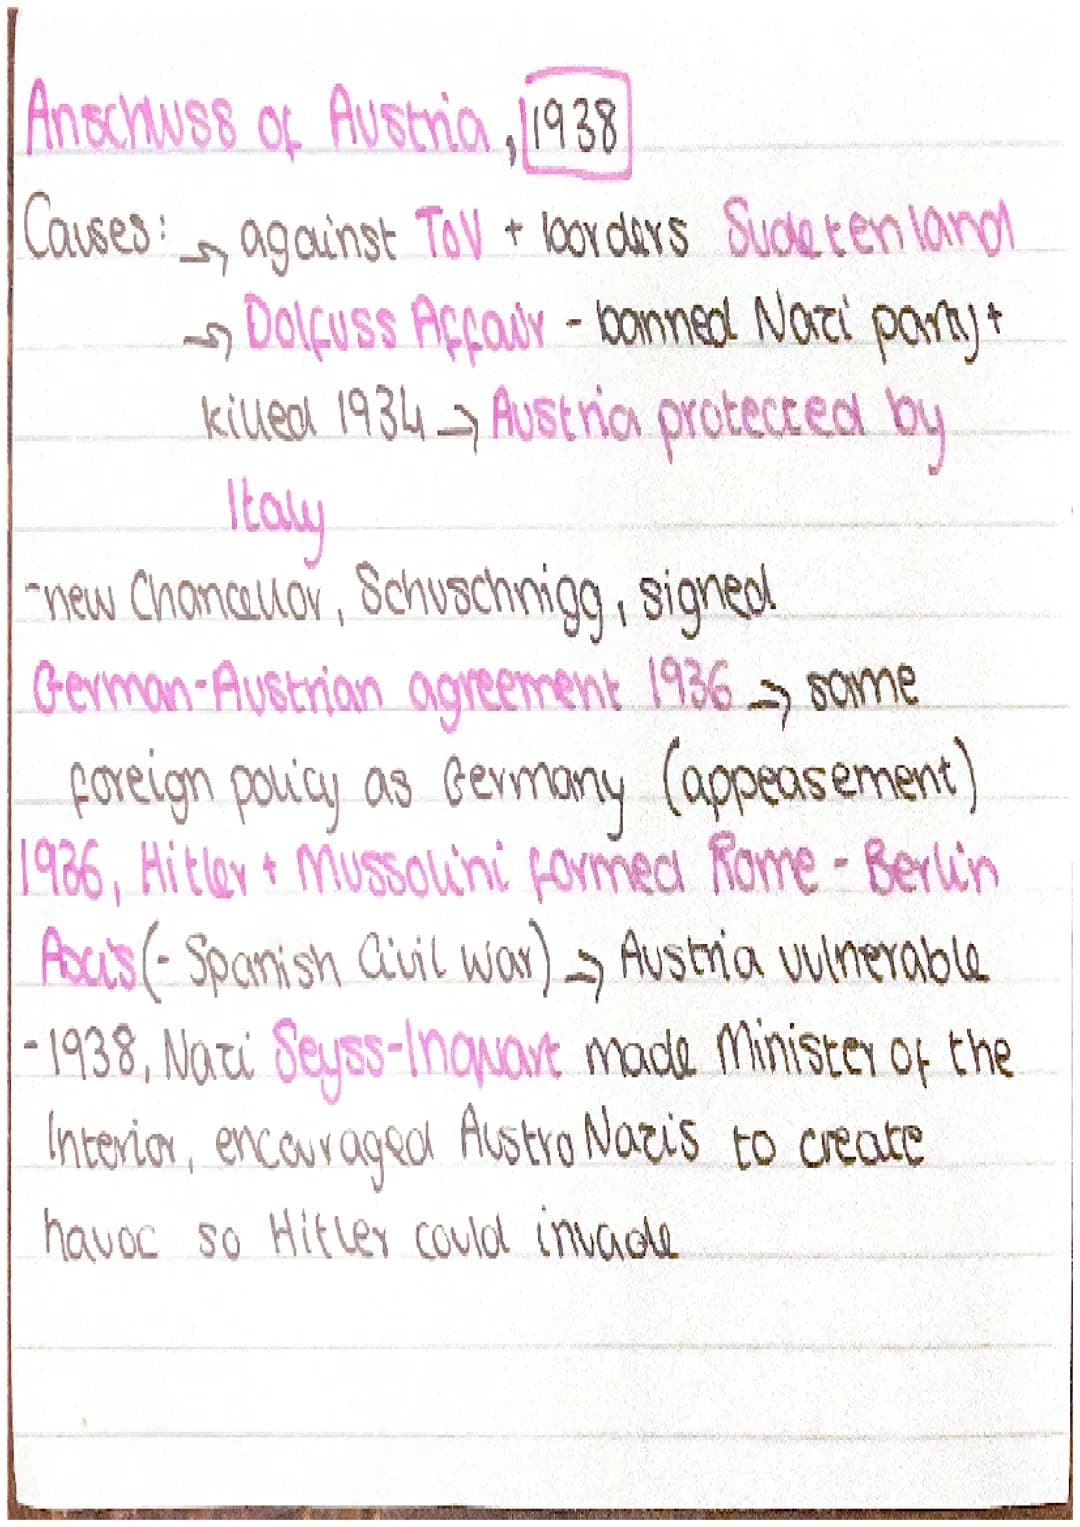 Anschluss of Austria, 1938
Causes: → against ToV + borders Sudetenland
→ Dolfuss Affair - banned Nazi party +
killed 1934 → Austria protected by
Italy
-new Chancellor, Schuschnigg, signed
German-Austrian agreement 1936 → same
foreign policy as Germany (appeasement)
1936, Hitler + Mussolini formed Rome - Berlin
Axis (- Spanish Civil War) → Austria vulnerable
-1938, Nazi Seyss-Inquart made Minister of the
Interior, encouraged Austro Nazis to create
havoc so Hitler could invade